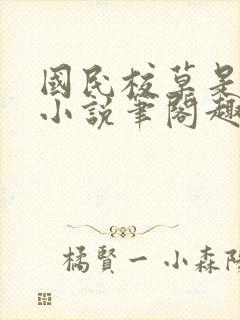 國民校草是
小說筆閣趣
橘賢一 小森陽